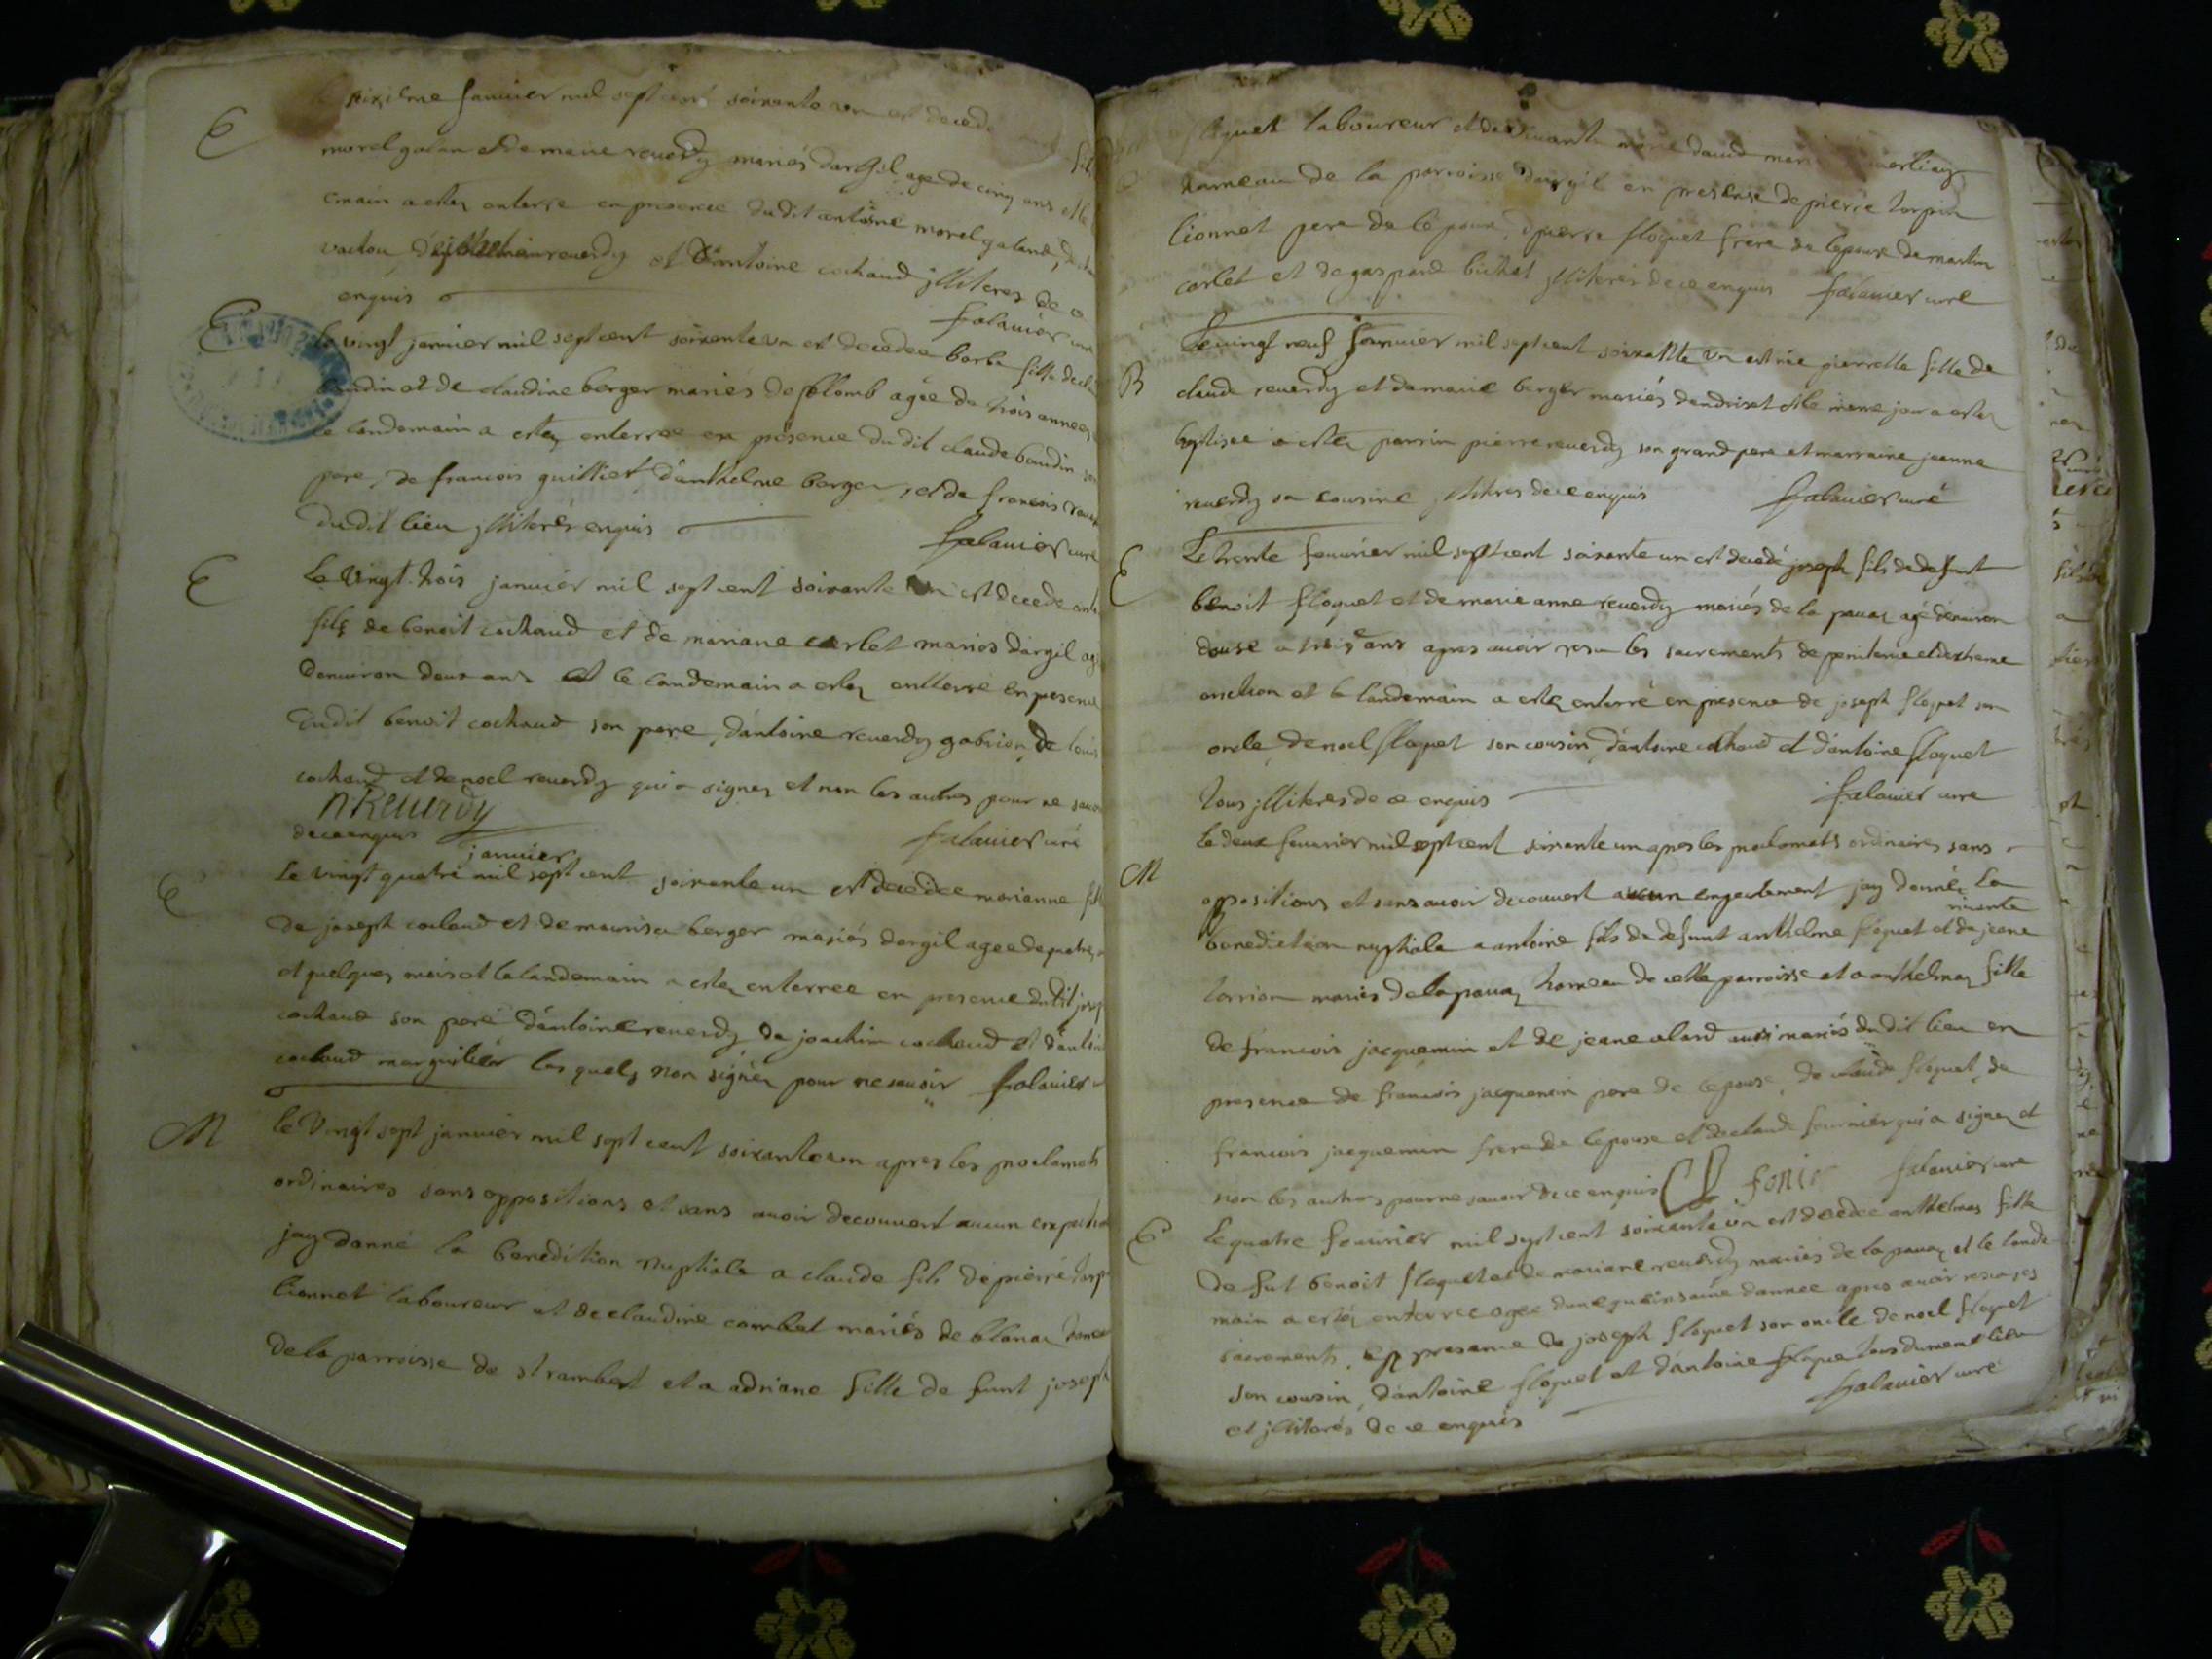 E
sixiême januier mil sept cent soixante un est decede
morel galan et de marie reuerdy mariés dargil age de cinq ans et le
emain a estez enterre en presence du dit antoine morel galand,
vachou reuerdy et d'antoine cochaud jlliteres de ce
enquis falauier curé
E
le vingt januier mil sept cent soixante un est decedee barbe fille de
baudin et de claudine berger mariés de plomb agée de trois annees
le landemain a estez enterree en presence du dit claude baudin son
pere, de francois guilliet d'anthelme berger, et de francois
du dit lieu jlliterés enquis falauier curé
E
Le vingt trois januier mil sept cent soixante un est decede
fils de benoit cochaud et de mariane carlet mariés dargil
denuiron deux ans et le landemain a estez entterré en presence
du dit benoit cochaud son pere, d'antoine reuerdy gabrion, de louis
cochaud et de noel reuerdy qui a signez et non les autres pour ne sauoir
NReuerdy
de ce enquis falauier curé
januier
E
Le vingt quatre mil sept cent soixante un est decedee marianne fille
de joseph cochaud et de maurisa berger mariés dargil agee de quatre
et quelques mois et le landemain a estez enterree en presence du dit joseph
cochaud son pere d'antoine reuerdy de joachim cochaud et d'antoine
cochaud marguilier les quels non signéz pour ne sauoir falauier
M
le vingt sept januier mil sept cent soixante un apres les proclamats
ordinaires sans oppositions et sans auoir decouuert aucun
jay danné la benedition nuptiale a claude fils de pierre torpin
lionnet laboureur et de claudine combet mariés de blanaz
de la parroisse de st rambert et a adriane fille de funt joseph
floquet laboureur et de viuante marie dauid
hameau de la parroisse dargil en presense de pierre torpin
lionnet pere de lépoux, de pierre floquet frere de lepouse de martin
carlet et de gaspard bichat jlliterés de ce enquis falauier curé
B
Le vingt neuf januier mil sept cent soixante un est née pierrette fille de
claude reuerdy et de marie berger mariés dandrixet et le meme jour a estez
baptisee a estez parrin pierre reuerdy son grand pere et marraine jeanne
reuerdy sa cousine jlliteres de ce enquis falauier curé
E
Le trente feuurier mil sept cent soixante un est decedé joseph fils de defunt
benoit floquet et de marie anne reuerdy mariés de la pauaz agé denuiron
douse a treis ans apres auoir resu les sacrements de penitence et dextreme
onction et le landemain a estez enterré en presence de joseph floquet son
oncle, de noel floquet son cousin, d'antoine cochaud et d'antoine floquet
tous jlliteres de ce enquis falauier curé
M
Le deux feuurier mil sept cent soixante un apres les proclomats ordinaires sans
oppositions et sans auoir decouuert aucun enpechement jay donnéz la
viuante
benediction nuptiale a antoine fils de defunt anthelme floquet et de jeane
torrion mariés de la pauaz hameau de cette parroisse et a anthelmaz fille
de francois jacquemin et de jeane alard aussi mariés du dit lieu en
presence de francois jacquemin pere de lepouse, de claude floquet, de
francois jacquemin frere de lepouse et de claude fournier qui a signez et
non les autres pour ne sauoir de ce enquis C fonie falauier curé
E
Le quatre feuurier mil sept cent soixante un est decedee anthelmaz fille
de fut benoit floquet et de mariane reuerdy mariés de la pauaz et le lande
main a estéz enterree agee dune quinsaine dannee apres auoir resu ses
sacrements, en presance de joseph floquet son oncle de noel floquet
son cousin, d'antoine floquet et d'antoine floquet tous du meme lieu
et jlliterés de ce enquis falauier curé